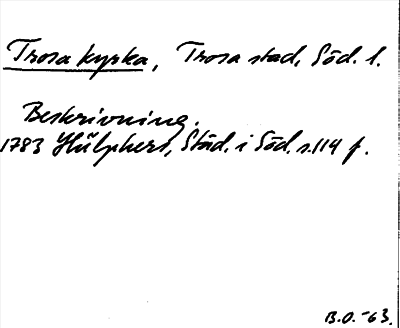 Trosa kyrka, Trosa stad, Söd. l.
Beskrivning.
1783 Hülphers, Städ. i Söd. s. 114 f.
B.O. -63.